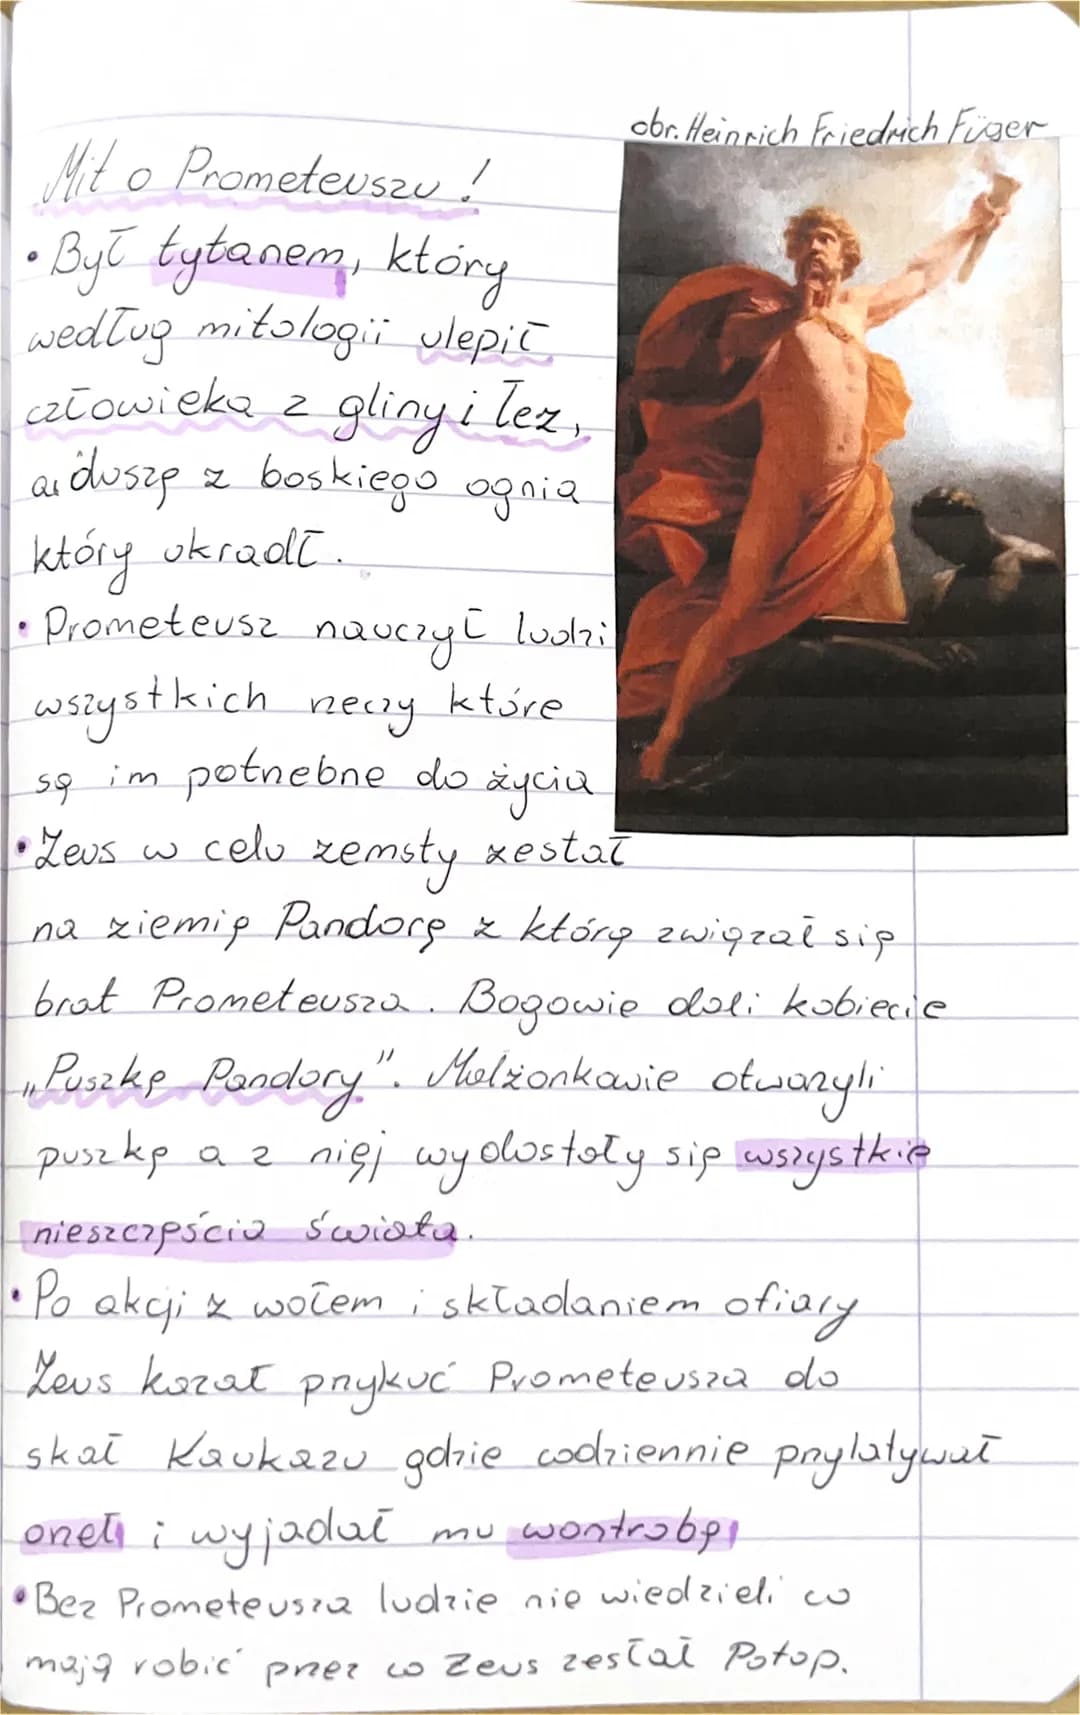 obr. Heinrich Friedrich Füger
Mit o Prometeuszu!
• Był tytanem, który
według mitologii ulepił
człowieka z gliny i łez,
a duszę z boskiego ognia
który ukradł.
• Prometeusz nauczył ludzi
wszystkich rzeczy które
są im potrzebne do życia
• Zeus w celu zemsty zesłał
na ziemię Pandorę z którą związał się
brat Prometeusza. Bogowie dali kobiecie
„Puszkę Pandory". Małżonkowie otworzyli
puszkę a z niej wydostały się wszystkie
nieszczęścia świata.
• Po akcji z wołem i składaniem ofiary
Zeus kazał przykuć Prometeusza do
skał Kaukazu gdzie codziennie przylatywał
orzeł i wyjadał mu wontrobę
• Bez Prometeusza ludzie nie wiedzieli co
mają robić przez co Zeus zesłał Potop.